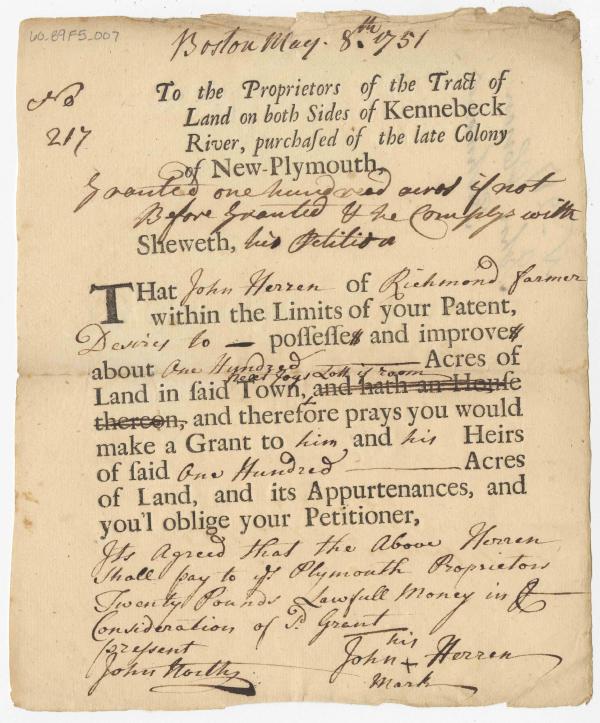 60-89F5-007
Boston May. 8.th 1751
No
217
To the Proprietors of the Tract of
Land on both Sides of Kennebeck
River, purchaſed of the late Colony
of New-Plymouth,
Granted one hundred acres if not
Before Granted & he Complys with
Sheweth, his Petition
THat John Herren of Richmond farmer
within the Limits of your Patent,
Desires to — poſſeſſes and improves
about One Hundred — Acres of
near Lott if room
Land in ſaid Town, and hath an Houſe
thereon, and therefore prays you would
make a Grant to him and his Heirs
of ſaid One Hundred — Acres
of Land, and its Appurtenances, and
you'l oblige your Petitioner,
Its Agreed that the Above Herren
Shall pay to ye Plymouth Proprietors
Twenty Pounds Lawfull Money in
Consideration of sd Grant
present
his
John North John + Herren
Mark